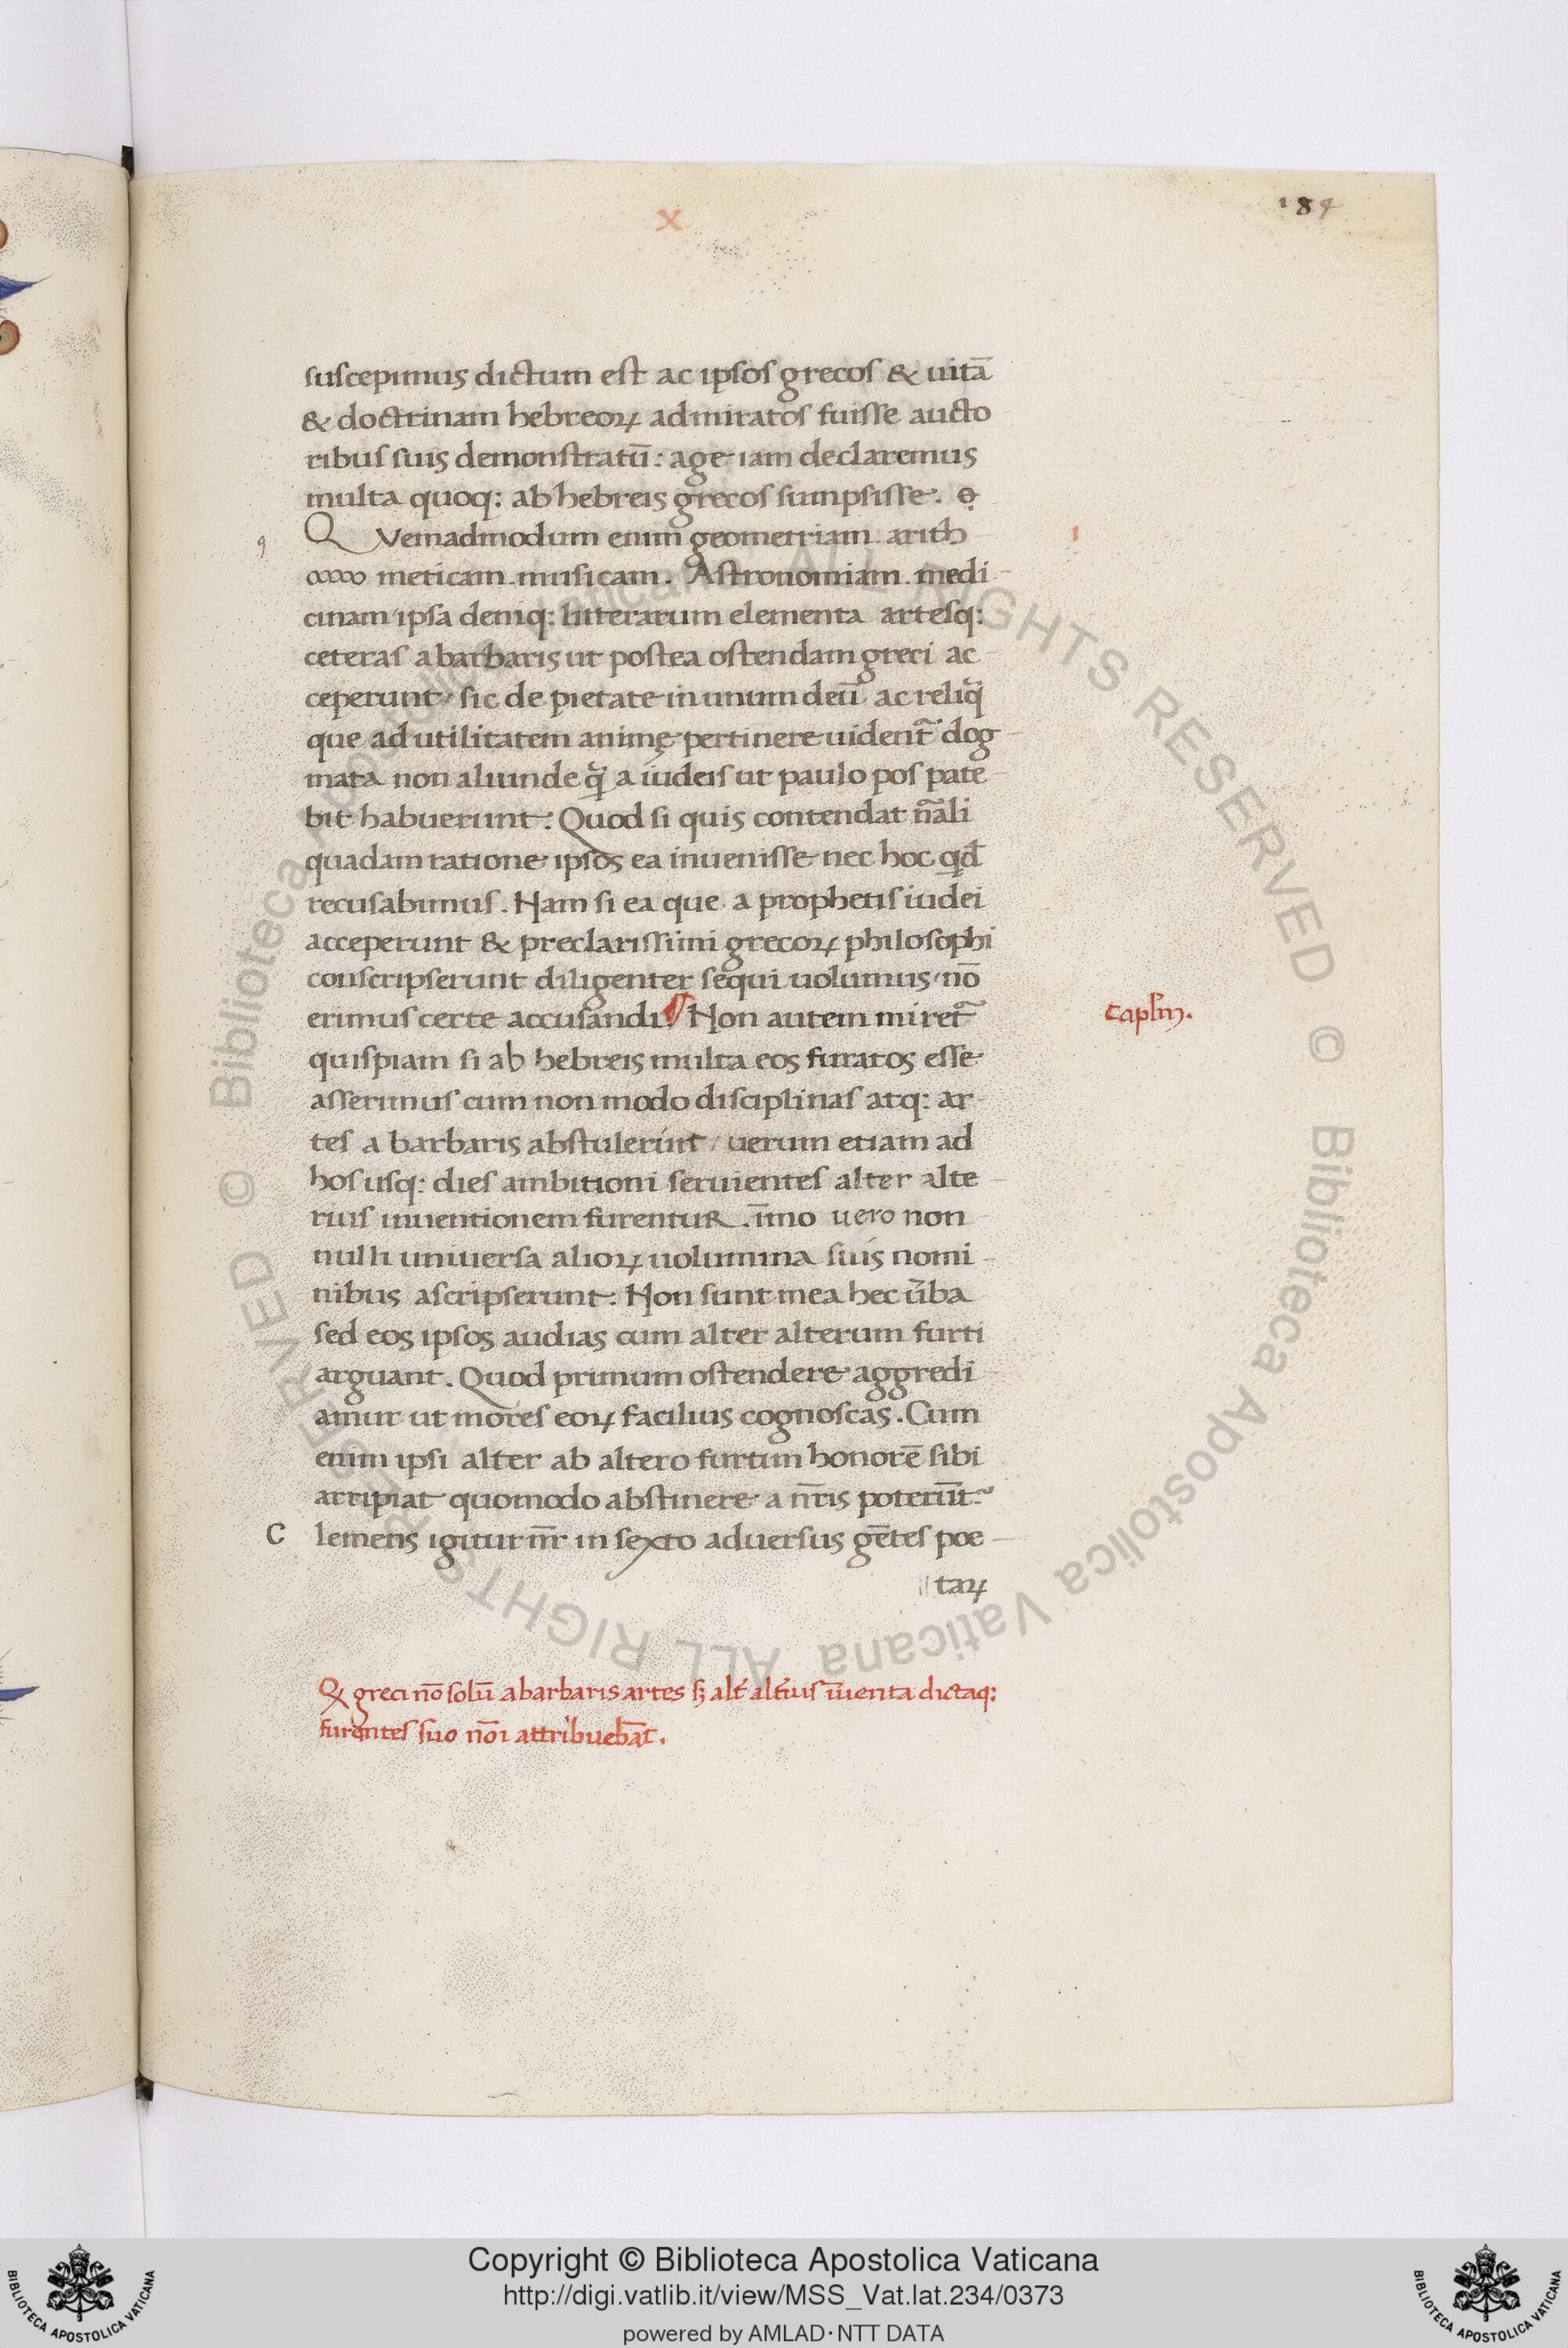 x
184
suscepimus dictum est ac ipsos grecos & uitā
& doctrinam hebreoꝝ admiratos fuisse aucto
ribus suis demonstratū: age iam declaremus
multa quoq: ab hebreis grecos sumpsisse.
Quemadmodum enim geometriam. arith
meticam. musicam. Astronomiam. medi
cinam ipsa deniq: litterarum elementa artesq:
ceteras a barbaris ut postea ostendam greci ac
ceperunt/ sic de pietate in unum deū ac reliq̄
que ad utilitatem animę pertinere uident᷑ dog
mata non aliunde q̄ a iudeis ut paulo pos pate
bit habuerunt: Quod si quis contendat nāli
quadam ratione ipsos ea inuenisse nec hoc qd̄
recusabimus. Nam si ea que a prophetis iudei
acceperunt & preclarissimi grecoꝝ philosophi
conscripserunt diligenter sequi uolumus/ nō
erimus certe accusandi. Non autem miret᷑
caplm̄.
quispiam si ab hebreis multa eos furatos esse
asserimus cum non modo disciplinas atq: ar
tes a barbaris abstulerint/ uerum etiam ad
hos usq: dies ambitioni seruientes alter alte
rius inuentionem furentur. īmo uero non
nulli uniuersa alioꝝ uolumina suis nomi
nibus ascripserunt. Non sunt mea hec ūba
sed eos ipsos audias cum alter alterum furti
arguant. Quod primum ostendere aggredi
amur ut mores eoꝝ facilius cognoscas. Cum
enim ipsi alter ab altero furtim honorē sibi
arripiat quomodo abstinere a nr̄is poterūt.
C lemens igitur nr̄ in sexto aduersus gētes poe
taꝝ
Q̇ greci nō solū a barbaris artes sꝫ alt̄ alt̄ius īuenta dictaq:
furentes suo nōi attribuebāt.
Copyright © Biblioteca Apostolica Vaticana
http://digi.vatlib.it/view/MSS_Vat.lat.234/0373
powered by AMLAD·NTT DATA
BIBLIOTECA APOSTOLICA VATICANA
BIBLIOTECA APOSTOLICA VATICANA
© Biblioteca Apostolica Vaticana ALL RIGHTS RESERVED © Biblioteca Apostolica Vaticana ALL RIGHTS RESERVED